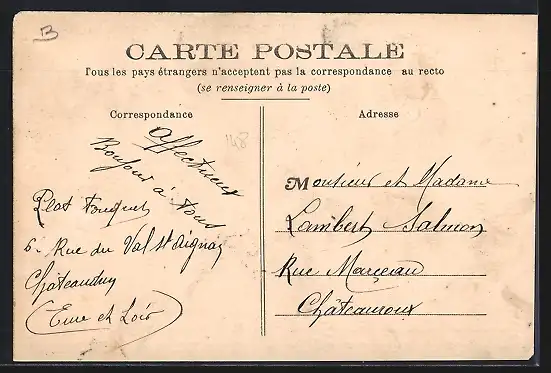 B
CARTE POSTALE
Tous les pays étrangers n'acceptent pas la correspondance au recto
(se renseigner à la poste)
Correspondance
148
Affectueux
Bonjour à tous
Plat Fouquet
6 - Rue du Val St Aignan
Châteaudun
(Eure et Loir)
Adresse
Monsieur et Madame
Lambert Salmon
Rue Marceau
Châteauroux